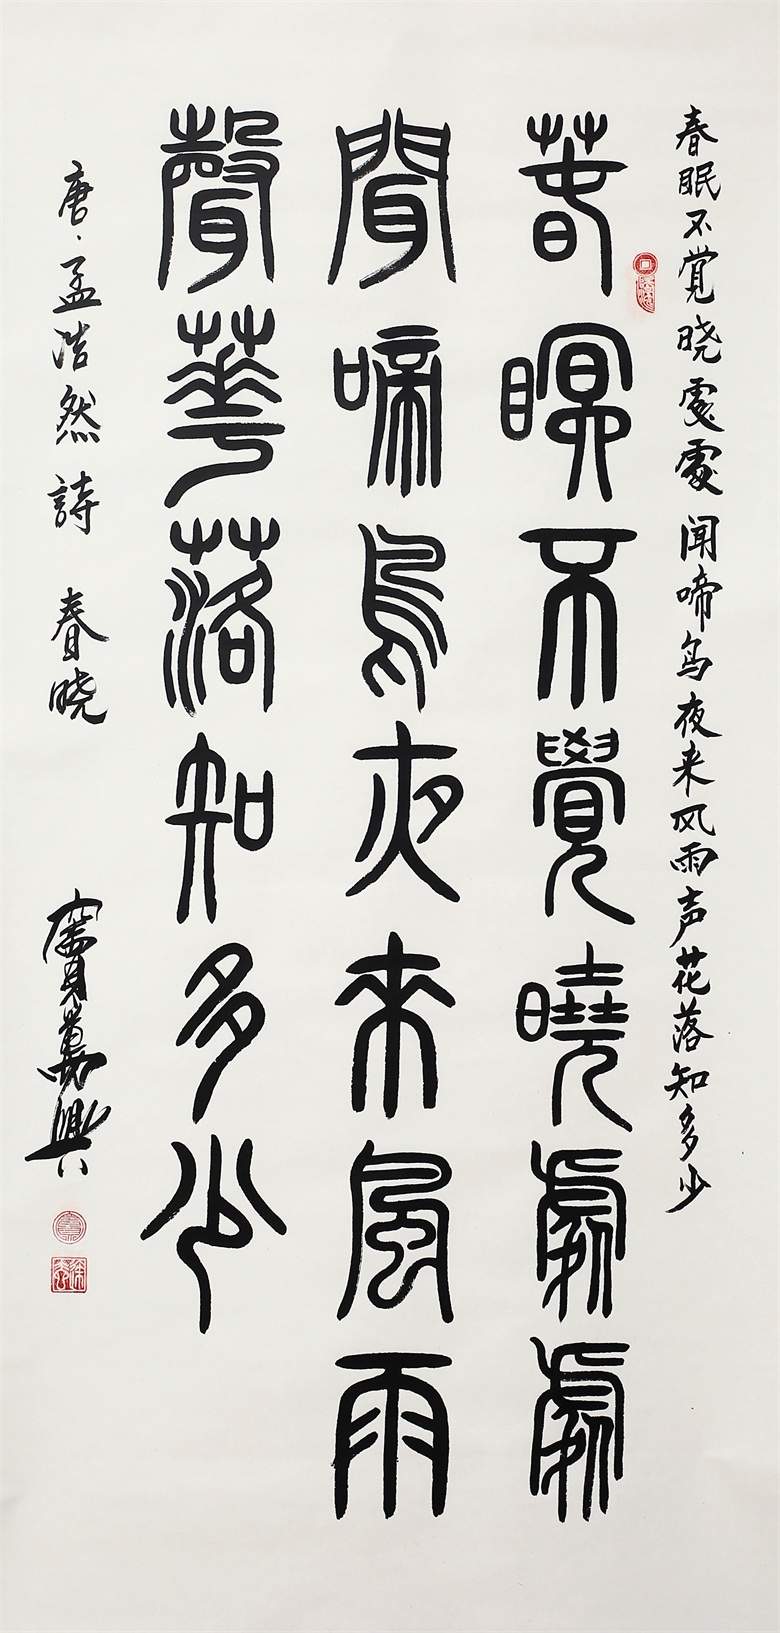 春眠不觉晓處處闻啼鸟夜来风雨声花落知多少
萅瞑不覺曉處處
聞啼鳥夜來風雨
聲華落知多少
唐·孟浩然詩 春晓